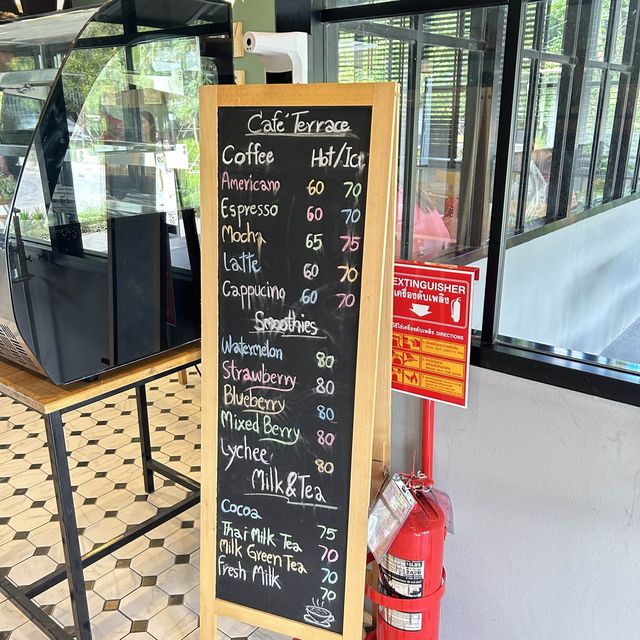 Cafe' Terrace
Coffee Hot/Ice
Americano 60 70
Espresso 60 70
Mocha 65 75
Latte 60 70
Cappucino 60 70
Smoothies
Watermelon 80
Strawberry 80
Blueberry 80
Mixed Berry 80
Lychee 80
Milk & Tea
Cocoa 75
Thai Milk Tea 70
Milk Green Tea 70
Fresh Milk 70
EXTINGUISHER
เครื่องดับเพลิง
DIRECTIONS
10LBS